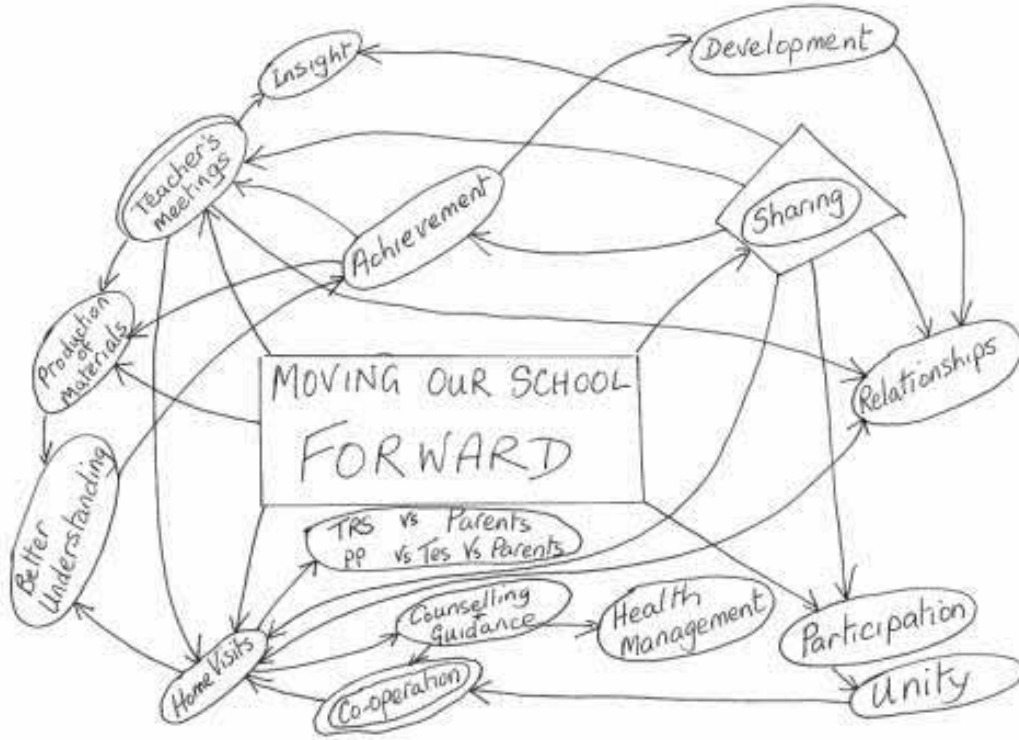 Insight
Development
Teacher's
Meetings
Achievement
Sharing
Production
of
Materials
Relationships
MOVING OUR SCHOOL
FORWARD
Better
Understanding
TRS vs Parents
PP vs Tes Vs Parents
Counselling
Guidance
Health
Management
Participation
Home Visits
Co-operation
Unity